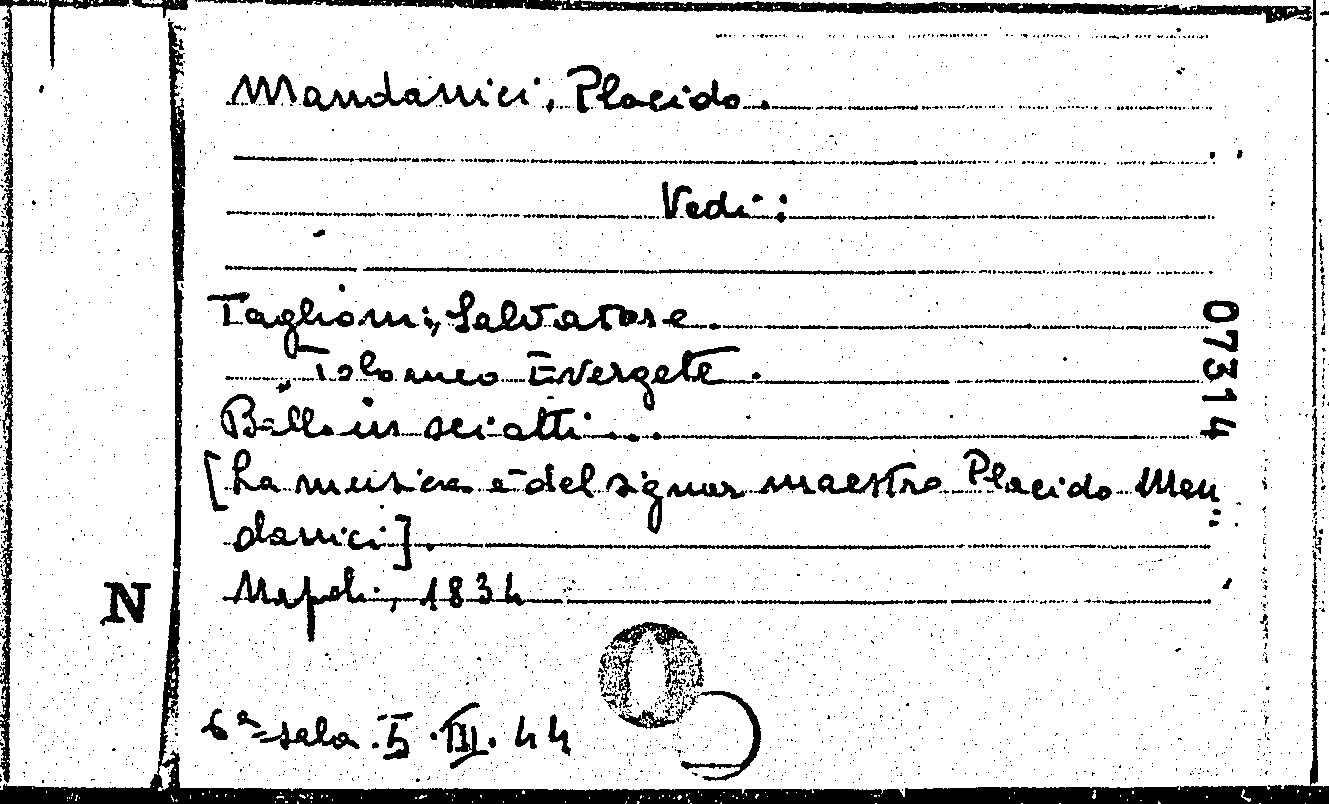 Mandanici, Placido.
Vedi:
Taglioni, Salvatore.
Tolomeo Evergete.
Ballo in sei atti...
[La musica è del signor maestro Placido Man
danici].
Napoli, 1834
N
07314
6ª sala. 5. III. 44